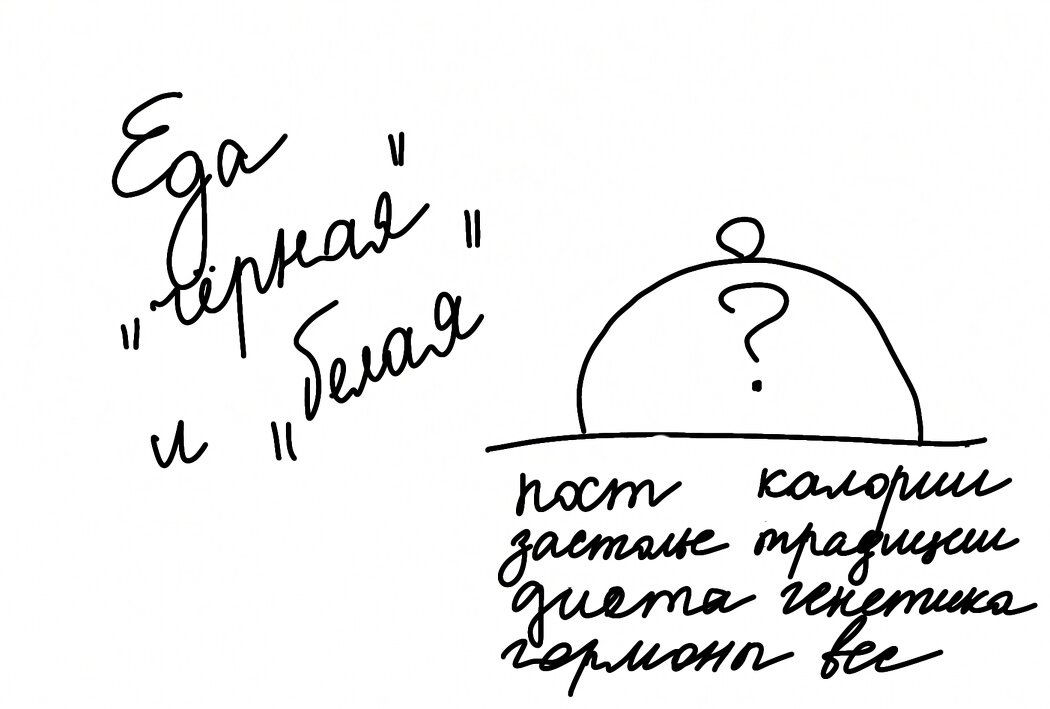 Еда
"чёрная"
и "белая"
?
пост калории
застолье традиции
диета генетика
гормоны вес